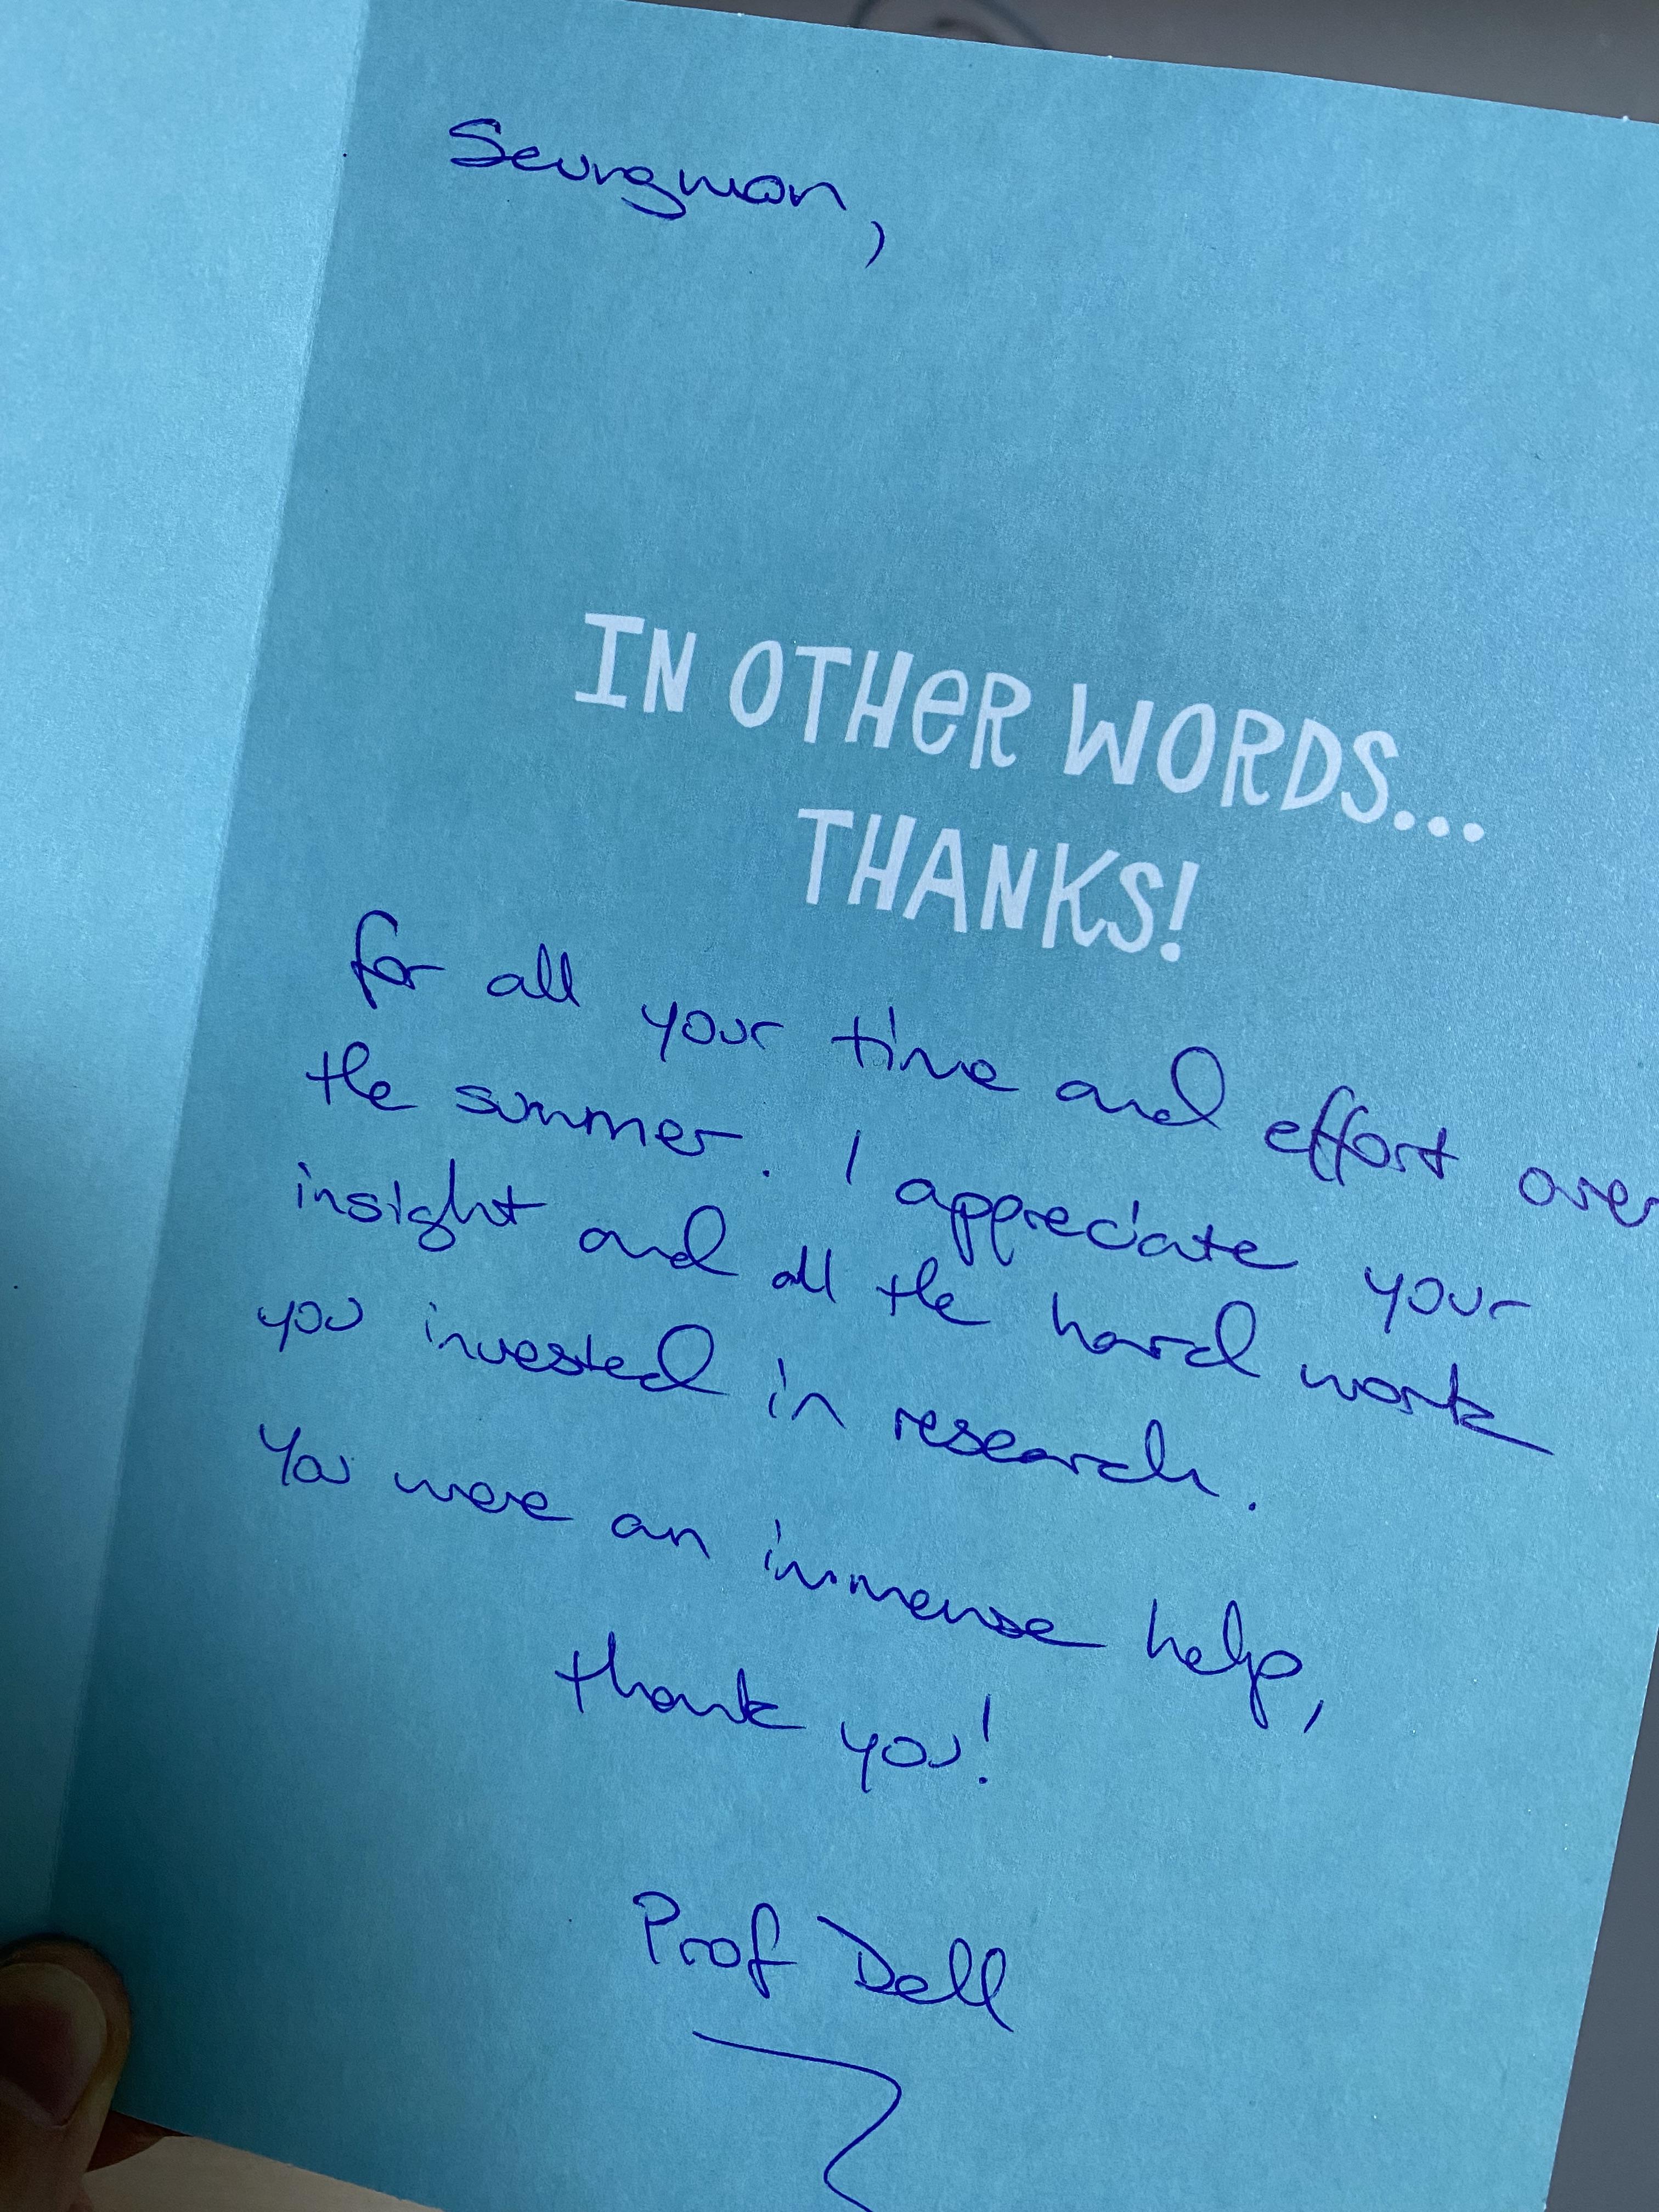 Seungwon,
IN OTHER WORDS...
THANKS!
for all your time and effort over
the summer. I appreciate your
insight and all the hard work
you invested in research.
You were an immense help,
thank you!
Prof Dell